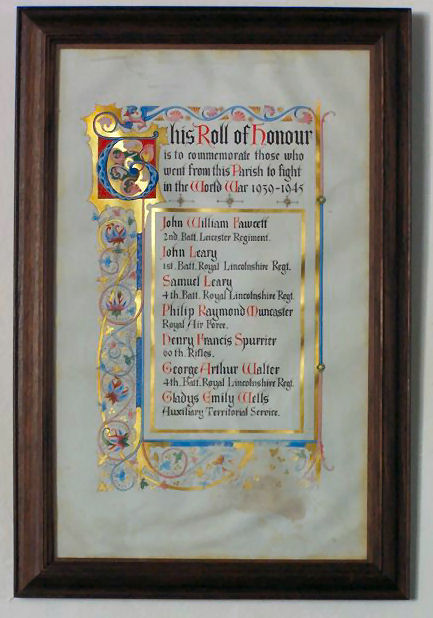 This Roll of Honour
is to commemorate those who
went from this Parish to fight
in the World War 1939-1945
John William Fawcett
2nd. Batt. Leicester Regiment.
John Leary
1st. Batt. Royal Lincolnshire Regt.
Samuel Leary
4th. Batt. Royal Lincolnshire Regt.
Philip Raymond Muncaster
Royal Air Force.
Henry Francis Spurrier
60th. Rifles.
George Arthur Walter
4th. Batt. Royal Lincolnshire Regt.
Gladys Emily Wells
Auxiliary Territorial Service.